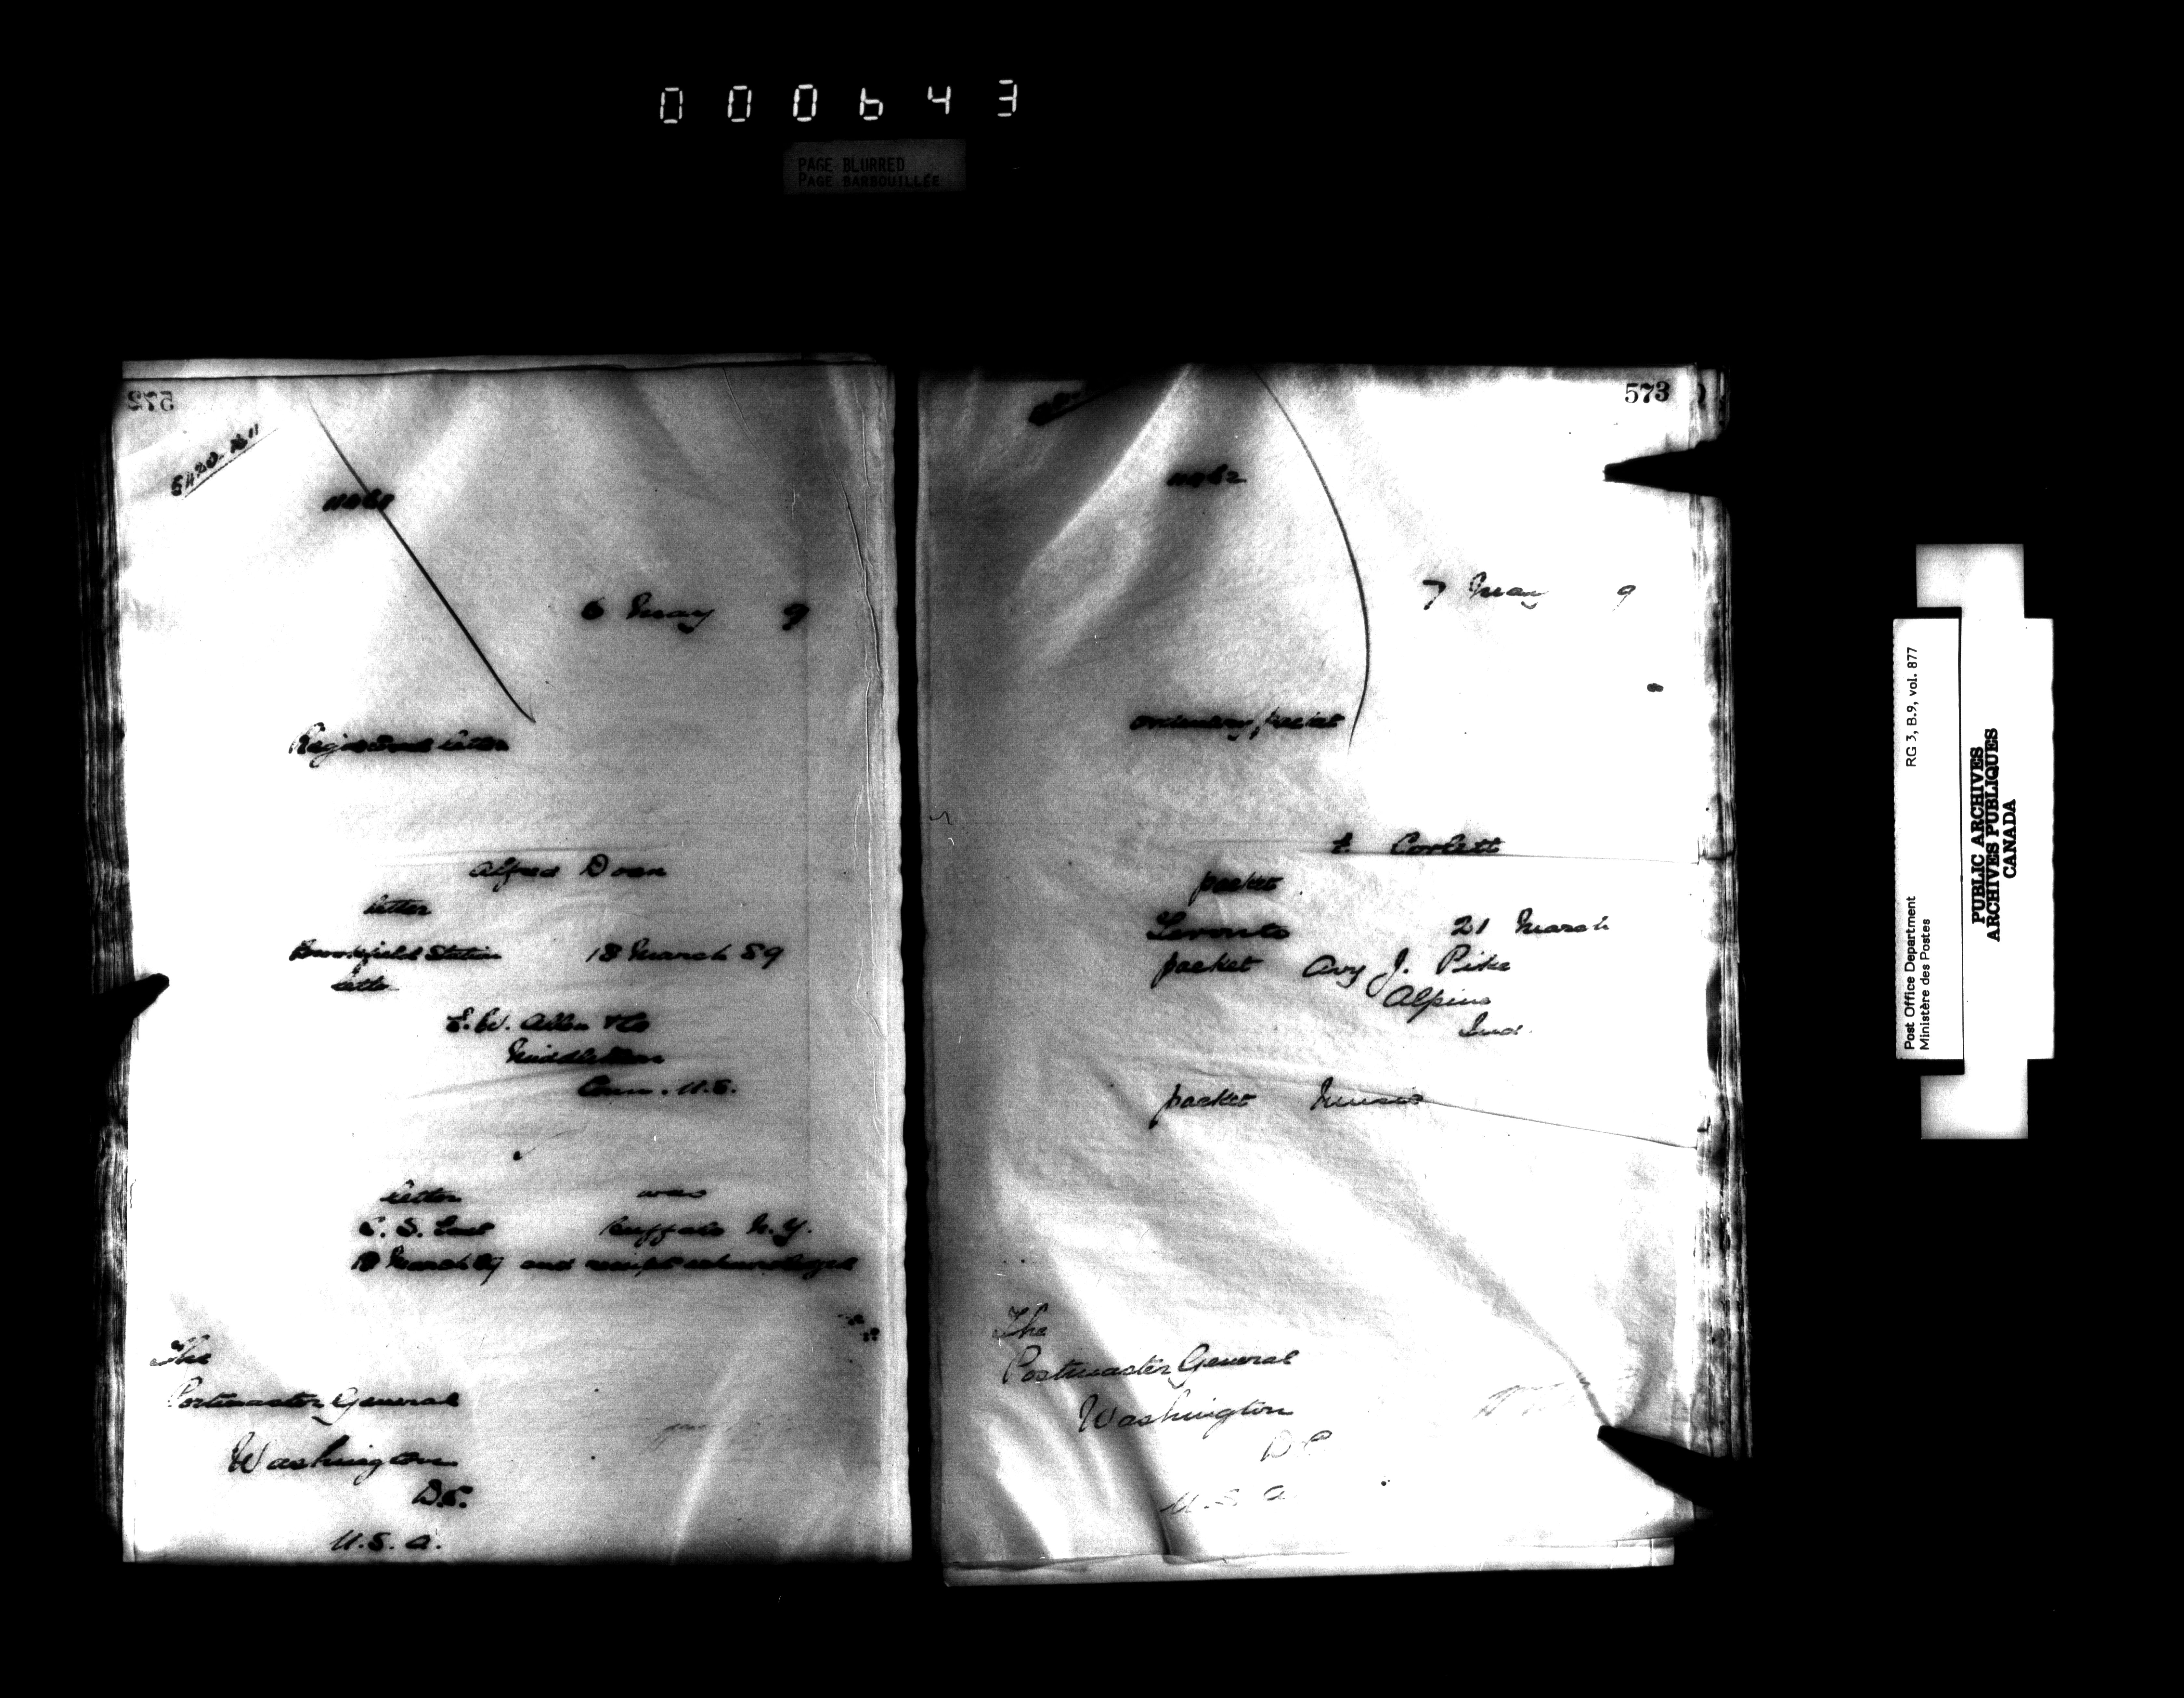 000643
PAGE BLURRED
PAGE BARBOUILLÉE
572
6 May 9
Registered Letter
Alfred Doan
letter
Brookfield Station 18 March 89
letter
E.W. Allen & Co
Middletown
Conn. U.S.
letter was
Buffalo N.Y.
18 March 89 and receipt acknowledged
The
Postmaster General
Washington
D.C.
U.S.A.
573
7 May 9
ordinary packet
Corlett
packet
Toronto 21 March
packet J. Pike
Alpine
Ind.
packet Music
The
Postmaster General
Washington
D C
U.S. A
Post Office Department RG 3, B.9, vol. 877
Ministère des Postes
PUBLIC ARCHIVES
ARCHIVES PUBLIQUES
CANADA